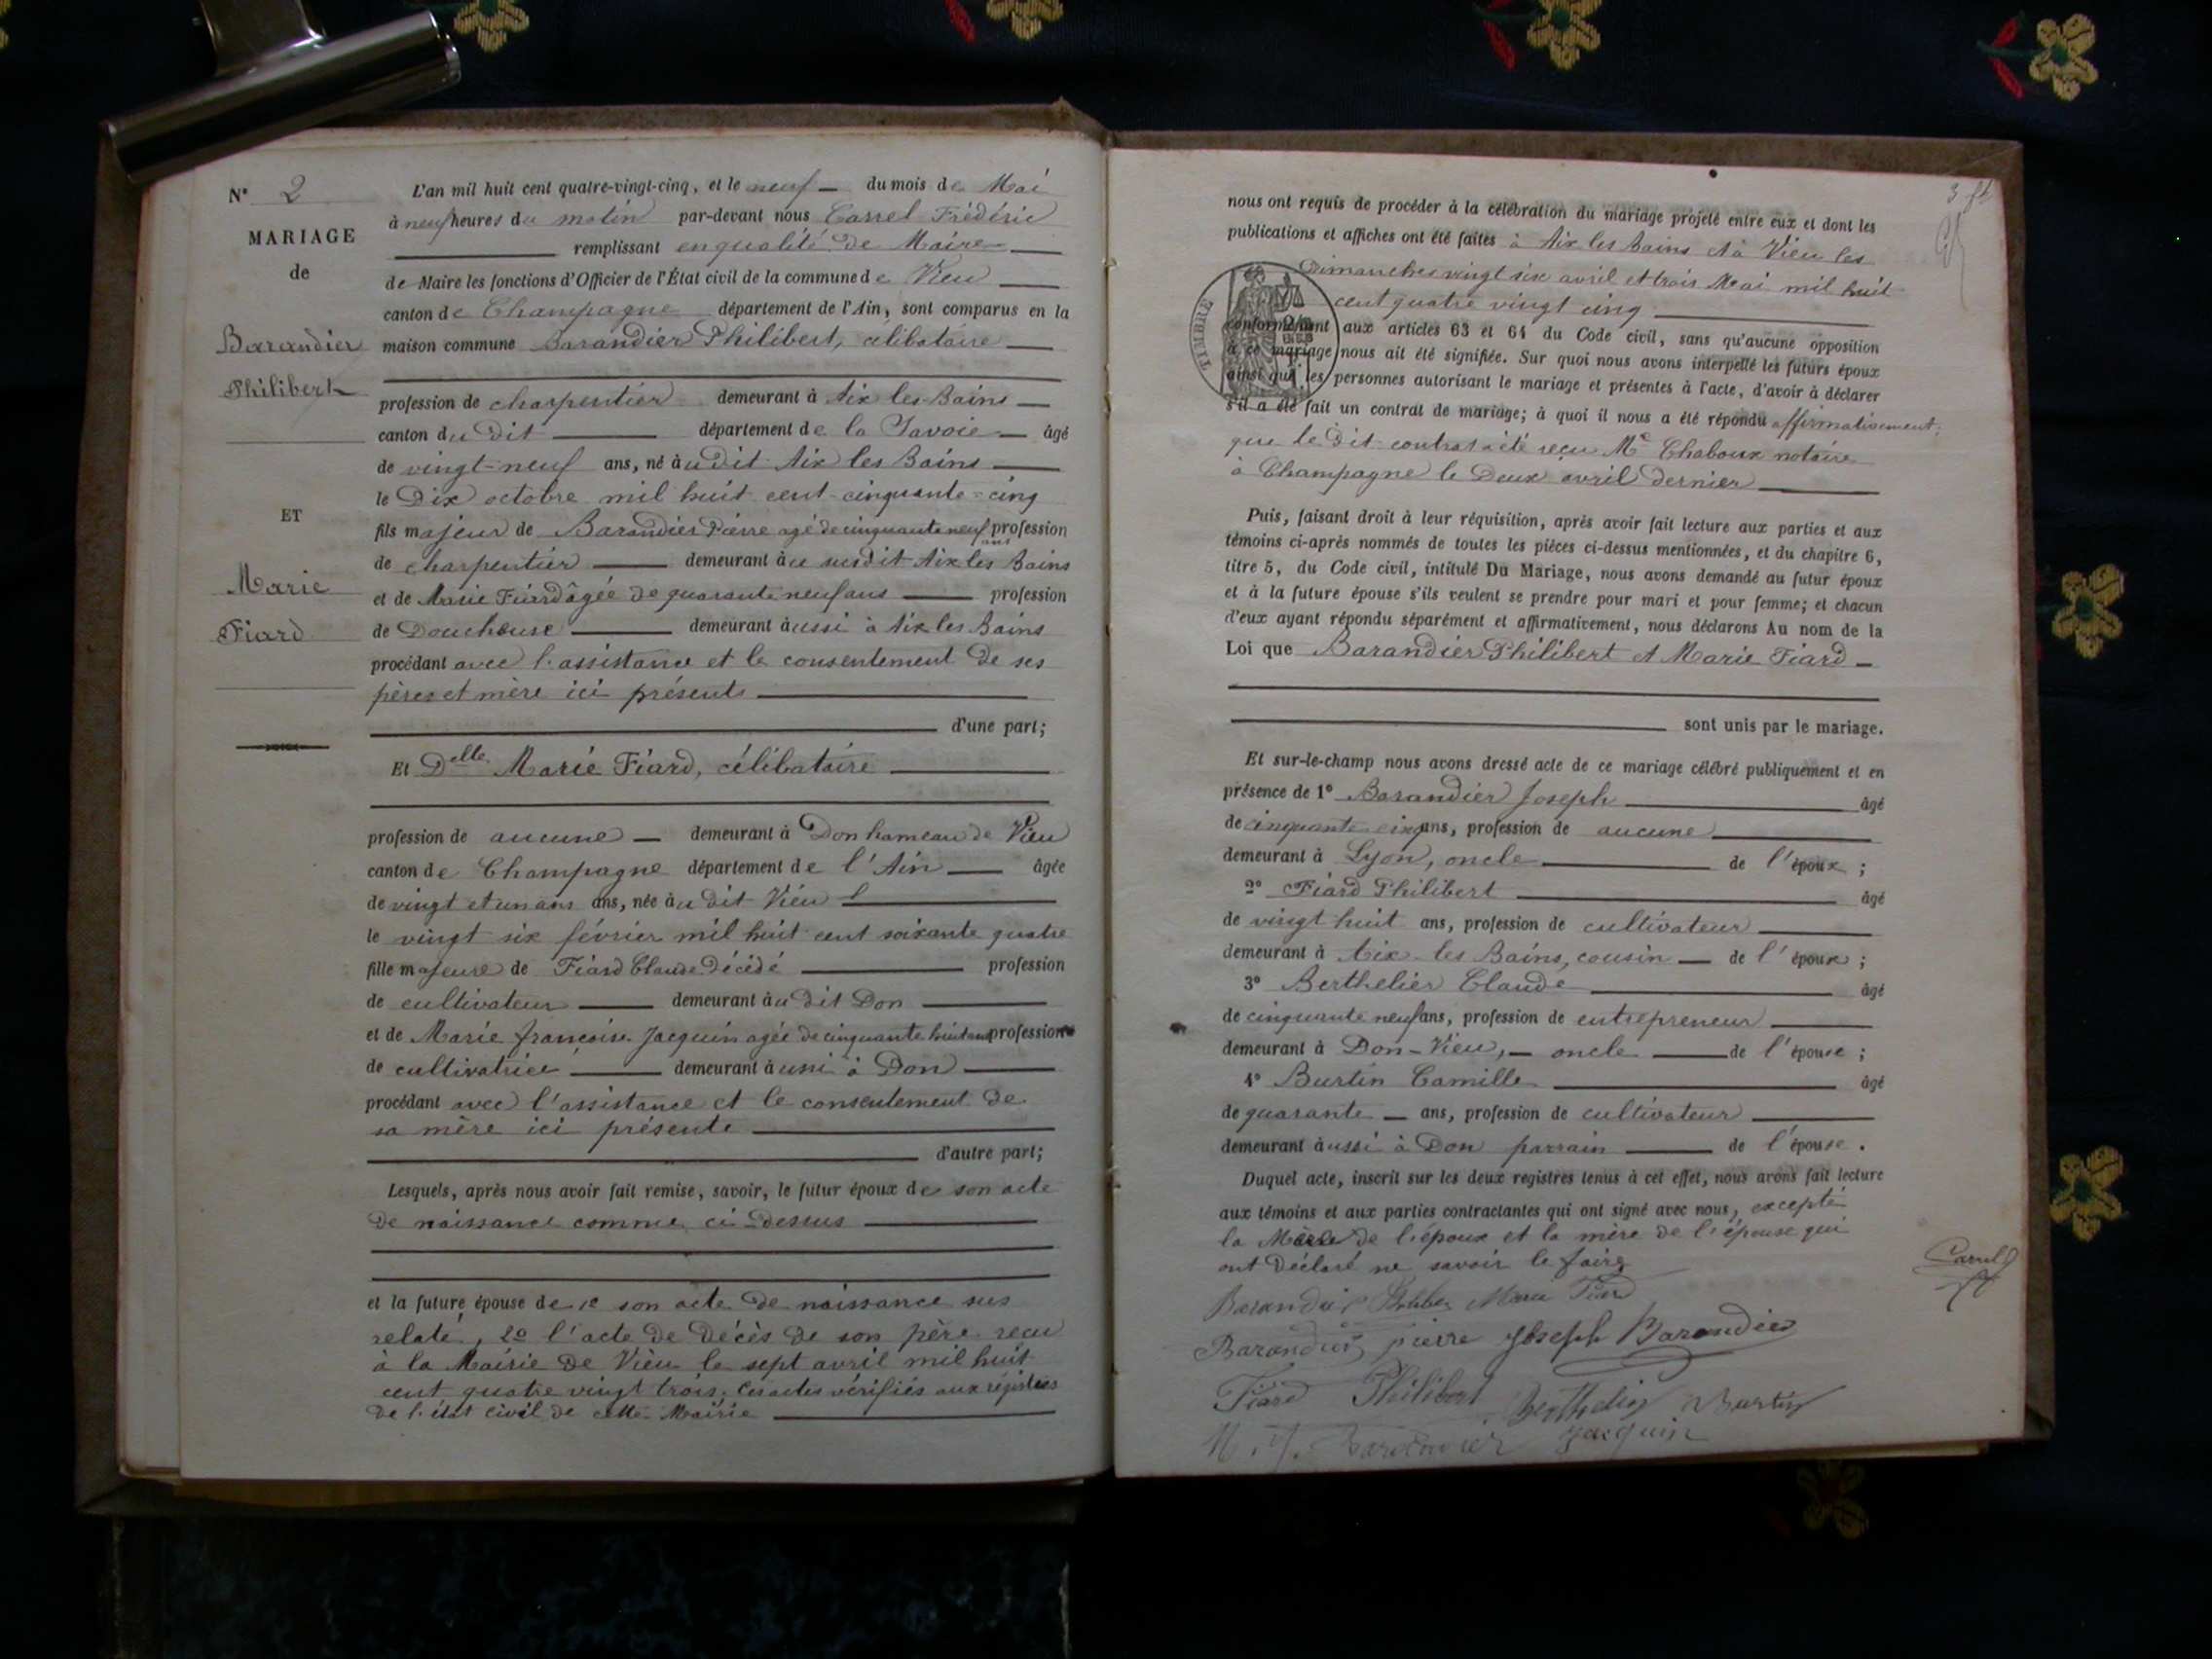 N° 2
MARIAGE
de
Barandier
Philibert
ET
Marie
Fiard
L'an mil huit cent quatre-vingt-cinq, et le neuf du mois de Mai
à neuf heures du matin par-devant nous Carrel Frédéric
remplissant en qualité de Maire
de Maire les fonctions d'Officier de l'État civil de la commune de Vieu
canton de Champagne département de l'Ain, sont comparus en la
maison commune Barandier Philibert, célibataire
profession de charpentier demeurant à Aix les Bains
canton du dit département de la Savoie âgé
de vingt-neuf ans, né audit Aix les Bains
le Dix octobre mil huit cent cinquante-cinq
fils majeur de Barandier Pierre agé de cinquante neuf ans profession
de charpentier demeurant au susdit Aix les Bains
et de Marie Fiard âgée de quarante neuf ans profession
de Doucheuse demeurant aussi à Aix les Bains
procédant avec l'assistance et le consentement de ses
pères et mère ici présents
d'une part;
Et Delle Marie Fiard, célibataire
profession de aucune demeurant à Don hameau de Vieu
canton de Champagne département de l'Ain âgée
de vingt et un ans ans, née au dit Vieu
le vingt six février mil huit cent soixante quatre
fille majeure de Fiard Claude décédé profession
de cultivateur demeurant au dit Don
et de Marie françoise Jacquin agée de cinquante huit ans profession
de cultivatrice demeurant aussi à Don
procédant avec l'assistance et le consentement de
sa mère ici présente
d'autre part;
Lesquels, après nous avoir fait remise, savoir, le futur époux de son acte
de naissance comme ci-dessus
et la future épouse de 1° son acte de naissance sus
relaté, 2° l'acte de décès de son père reçu
à la Mairie de Vieu le sept avril mil huit
cent quatre vingt trois. Ces actes vérifiés aux registres
de l'état civil de cette Mairie
nous ont requis de procéder à la célébration du mariage projeté entre eux et dont les
publications et affiches ont été faites à Aix les Bains et à Vieu les
Dimanches vingt six avril et trois Mai mil huit
cent quatre vingt cinq
TIMBRE
conformément aux articles 63 et 64 du Code civil, sans qu'aucune opposition
à ce mariage nous ait été signifiée. Sur quoi nous avons interpellé les futurs époux
ainsi que les personnes autorisant le mariage et présentes à l'acte, d'avoir à déclarer
s'il a été fait un contrat de mariage; à quoi il nous a été répondu affirmativement:
que le dit contrat a été reçu Me Chaboux notaire
à Champagne le Deux avril dernier
Puis, faisant droit à leur réquisition, après avoir fait lecture aux parties et aux
témoins ci-après nommés de toutes les pièces ci-dessus mentionnées, et du chapitre 6,
titre 5, du Code civil, intitulé Du Mariage, nous avons demandé au futur époux
et à la future épouse s'ils veulent se prendre pour mari et pour femme; et chacun
d'eux ayant répondu séparément et affirmativement, nous déclarons Au nom de la
Loi que Barandier Philibert et Marie Fiard
sont unis par le mariage.
Et sur-le-champ nous avons dressé acte de ce mariage célébré publiquement et en
présence de 1° Barandier Joseph âgé
de cinquante cinq ans, profession de aucune
demeurant à Lyon, oncle de l'époux ;
2° Fiard Philibert âgé
de vingt huit ans, profession de cultivateur
demeurant à Aix-les Bains, cousin de l'époux ;
3° Berthelier Claude âgé
de cinquante neuf ans, profession de entrepreneur
demeurant à Don-Vieu, oncle de l'épouse ;
4° Burtin Camille âgé
de quarante ans, profession de cultivateur
demeurant aussi à Don parrain de l'épouse.
Duquel acte, inscrit sur les deux registres tenus à cet effet, nous avons fait lecture
aux témoins et aux parties contractantes qui ont signé avec nous, excepté
la Mère de l'époux et la mère de l'épouse qui
ont déclaré ne savoir le faire
Barandier Marie Fiard
Barandier pierre Joseph Barandier
Fiard Philibert Berthelier Burtin
Barandier Jacquin